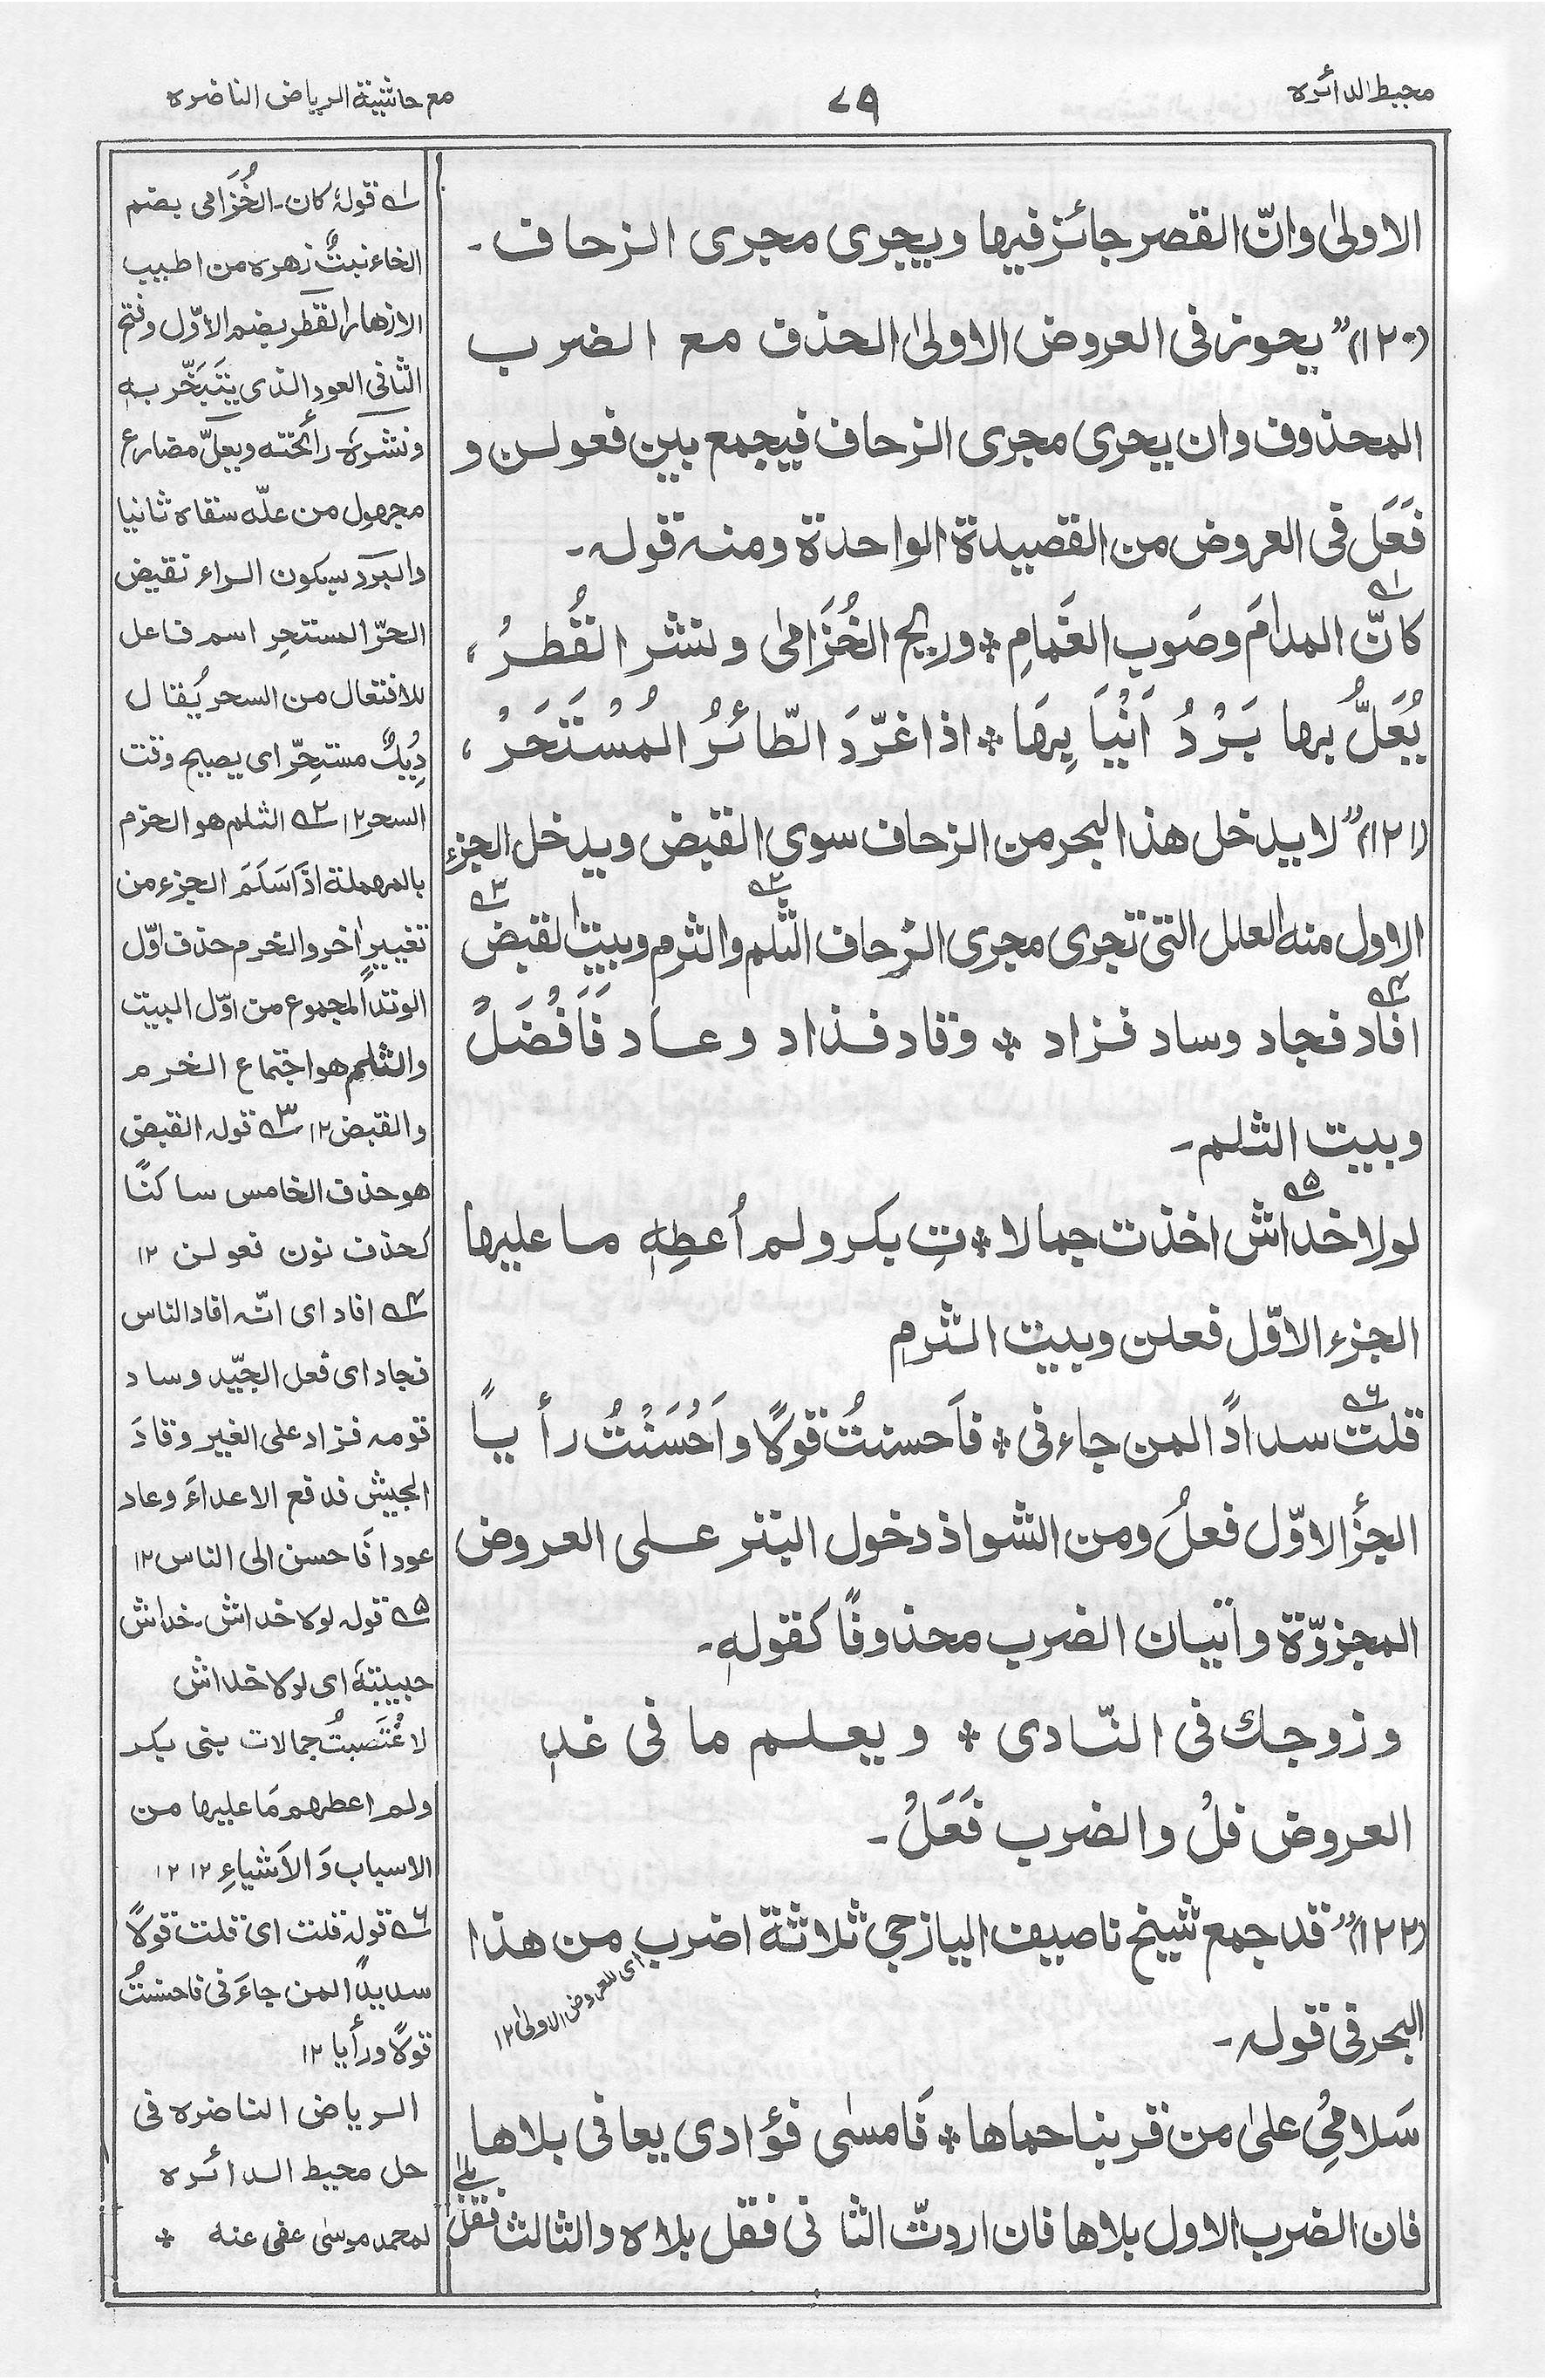 محيط الدائره
٧٩
مع حاشية الرياض الناضره
الاولىٰ وانّ القصر جائز فيها ويجرى مجرى الزحاف ـ
(١٢٠)” يجوز فى العروض الاولىٰ الحذف مع الضرب
المحذوف وان يجرى مجرى الزحاف فيجمع بين فعولن و
فَعَل فى العروض من القصيدة الواحدة ومنه قوله ـ
كانّ المدامَ وصَوب الغَمامِ * وريح الخُزَامىٰ ونشر القُطرُ،
يُعَلُّ بها بَرْدُ اَنْيَابِهَا * اذا غرّدَ الطّائرُ المُسْتَحَرْ،
(١٢١)” لا يدخل هذا البحر من الزحاف سوى القبض ويدخل الجزء
الاول منه العلل التى تجرى مجرى الزحاف الثلم والثرم وبيت القبض
افاد فجاد وساد فزاد * وقاد فذاد وعاد فَاَفْضَلْ
وبيت الثلم ـ
لولا خداش اخذت جمالا * تِ بكر ولم اُعطِهٖ ما عليها
الجزء الاوّل فعلن وبيت الثرمِ
قلت سدادًا لمن جاءنى * فاَحسنتُ قولًا واَحْسَنْتُ رأيًا
الجزأ الاوّل فعلُ ومن الشواذ دخول البتر على العروض
المجزوّة واتيان الضرب محذوفًا كقولهٖ ـ
وزوجك فى النّادى * ويعلم ما فى غدٖ
العروض فلْ والضرب فَعَلْ ـ
(١٢٢)” قد جمع شيخ ناصيف اليازجي ثلاثة اضرب من هذا
اى للعروض الاولىٰ ١٢
البحر فى قوله ـ
سَلامُى علىٰ من قربنا حماها * فَامسٰى فؤادى يعافى بلاها
فان الضرب الاول بلاها فان اردتّ الثانى فقل بلاه والثالث فقل
بلىٰ
١ قولهٗ كان ـ الخُزَامى بضم
الخاء نبتٌ زهره من اطيب
الازهار القطر بضم الاوّل وفتح
الثانى العود الذى يتَبَخّر بهٖ
ونشرهٗ رأئحته ويعلّ مضارع
مجهول من علّه سقاه ثانيا
والبرد بسكون الراء نقيض
الحرّ المستحِر اسم فاعل
للافتعال من السحر يُقال
دِيكٌ مستحِرّ اى يصيح وقت
السحر ١٢ ٢ الثلم هو الخرم
بالمهملة اذَا سَلَمَ الجزء من
تغييرٍ اخر والخرم حذف اوّل
الوتد المجموع من اوّل البيت
والثلم هو اجتماع الخرم
والقبض ١٢ ٣ قوله القبض
هو حذف الخامس ساكنًا
كحذف نون فعولن ١٢
٤ افاد اى انّه افاد الناس
فجاد اى فعل الجيّد وساد
قومه فزاد على الغير وقادَ
الجيش فدفع الاعداءَ وعاد
عودا فَاحسن الى الناس ١٢
٥ قوله لولا خداش ـ خداش
حبيبتهٗ اى لولا خداش
لاغْتَصبتُ جمالات بنى بكر
ولم اعطهم مَا عليها من
الاسباب وَالاَشياءِ ١٢ ١٢
٦ قوله قلت اى قلت قولًا
سديدًا لمن جاءَنى فاحسنتُ
قولًا ورأيا ١٢
الرياض الناضره فى
حل محيط الدائره
لمحمد موسىٰ عفى عنه *